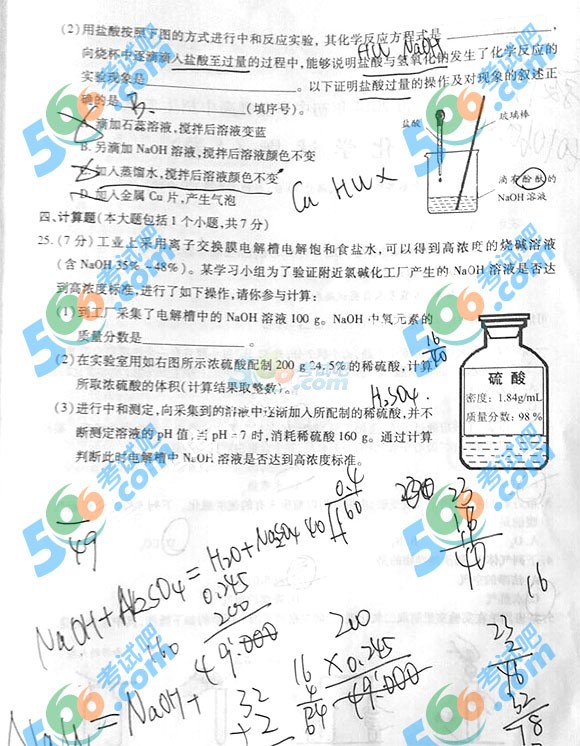 (2)用盐酸按照下图的方式进行中和反应实验，其化学反应方程式是
HCl NaOH
向烧杯中逐滴滴入盐酸至过量的过程中,能够说明盐酸与氢氧化钠发生了化学反应的
实验现象是。以下证明盐酸过量的操作及对现象的叙述正
确的是 B. (填序号)。
A. 滴加石蕊溶液,搅拌后溶液变蓝
B. 另滴加 NaOH 溶液,搅拌后溶液颜色不变
C. 加入蒸馏水,搅拌后溶液颜色不变
D. 加入金属 Cu 片,产生气泡
Cu HCl ×
盐酸
玻璃棒
滴有酚酞的
NaOH 溶液
四、计算题(本大题包括 1 个小题,共 7 分)
25.(7 分)工业上采用离子交换膜电解槽电解饱和食盐水,可以得到高浓度的烧碱溶液
(含 NaOH 35%~48%)。某学习小组为了验证附近氯碱化工厂产生的 NaOH 溶液是否达
到高浓度标准,进行了如下操作,请你参与计算:
(1)到工厂采集了电解槽中的 NaOH 溶液 100 g。NaOH 中氧元素的
质量分数是。
16
40
(2)在实验室用如右图所示浓硫酸配制 200 g 24.5%的稀硫酸,计算
所取浓硫酸的体积(计算结果取整数)。
H2SO4
(3)进行中和测定,向采集到的溶液中逐渐加入所配制的稀硫酸,并不
断测定溶液的 pH 值,当 pH=7 时,消耗稀硫酸 160 g。通过计算
判断此时电解槽中 NaOH 溶液是否达到高浓度标准。
硫 酸
密度: 1.84g/mL
质量分数: 98 %
566考试吧
.com
0.4
40
160
23
16
40
49
0.245
200
49.000
160
200
×0.245
49.000
16
4
64
16
23
2
46
32
32
+2
78